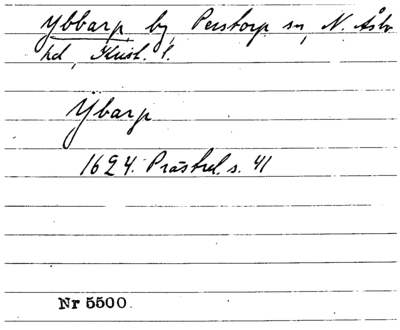 Ybbarp, by, Perstorp sn, N. Åsbo
hd, Krist. l.
Ybarp
1624. Prästrel. s. 41
Nr 5500